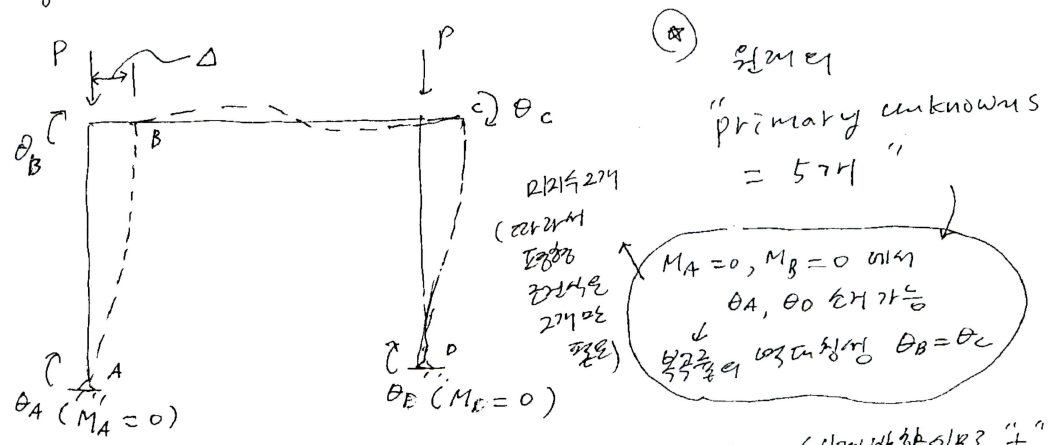 P
Δ
P
θ_B
B
C
θ_C
θ_A
A
(M_A = 0)
D
☆
원래의
"primary unknowns
= 5개"
미지수 2개
(따라서
평형
조건식은
2개만
필요)
M_A = 0, M_B = 0 에서
θ_A, θ_D 소거 가능
↓
역대칭성 θ_B = θ_C
"+"